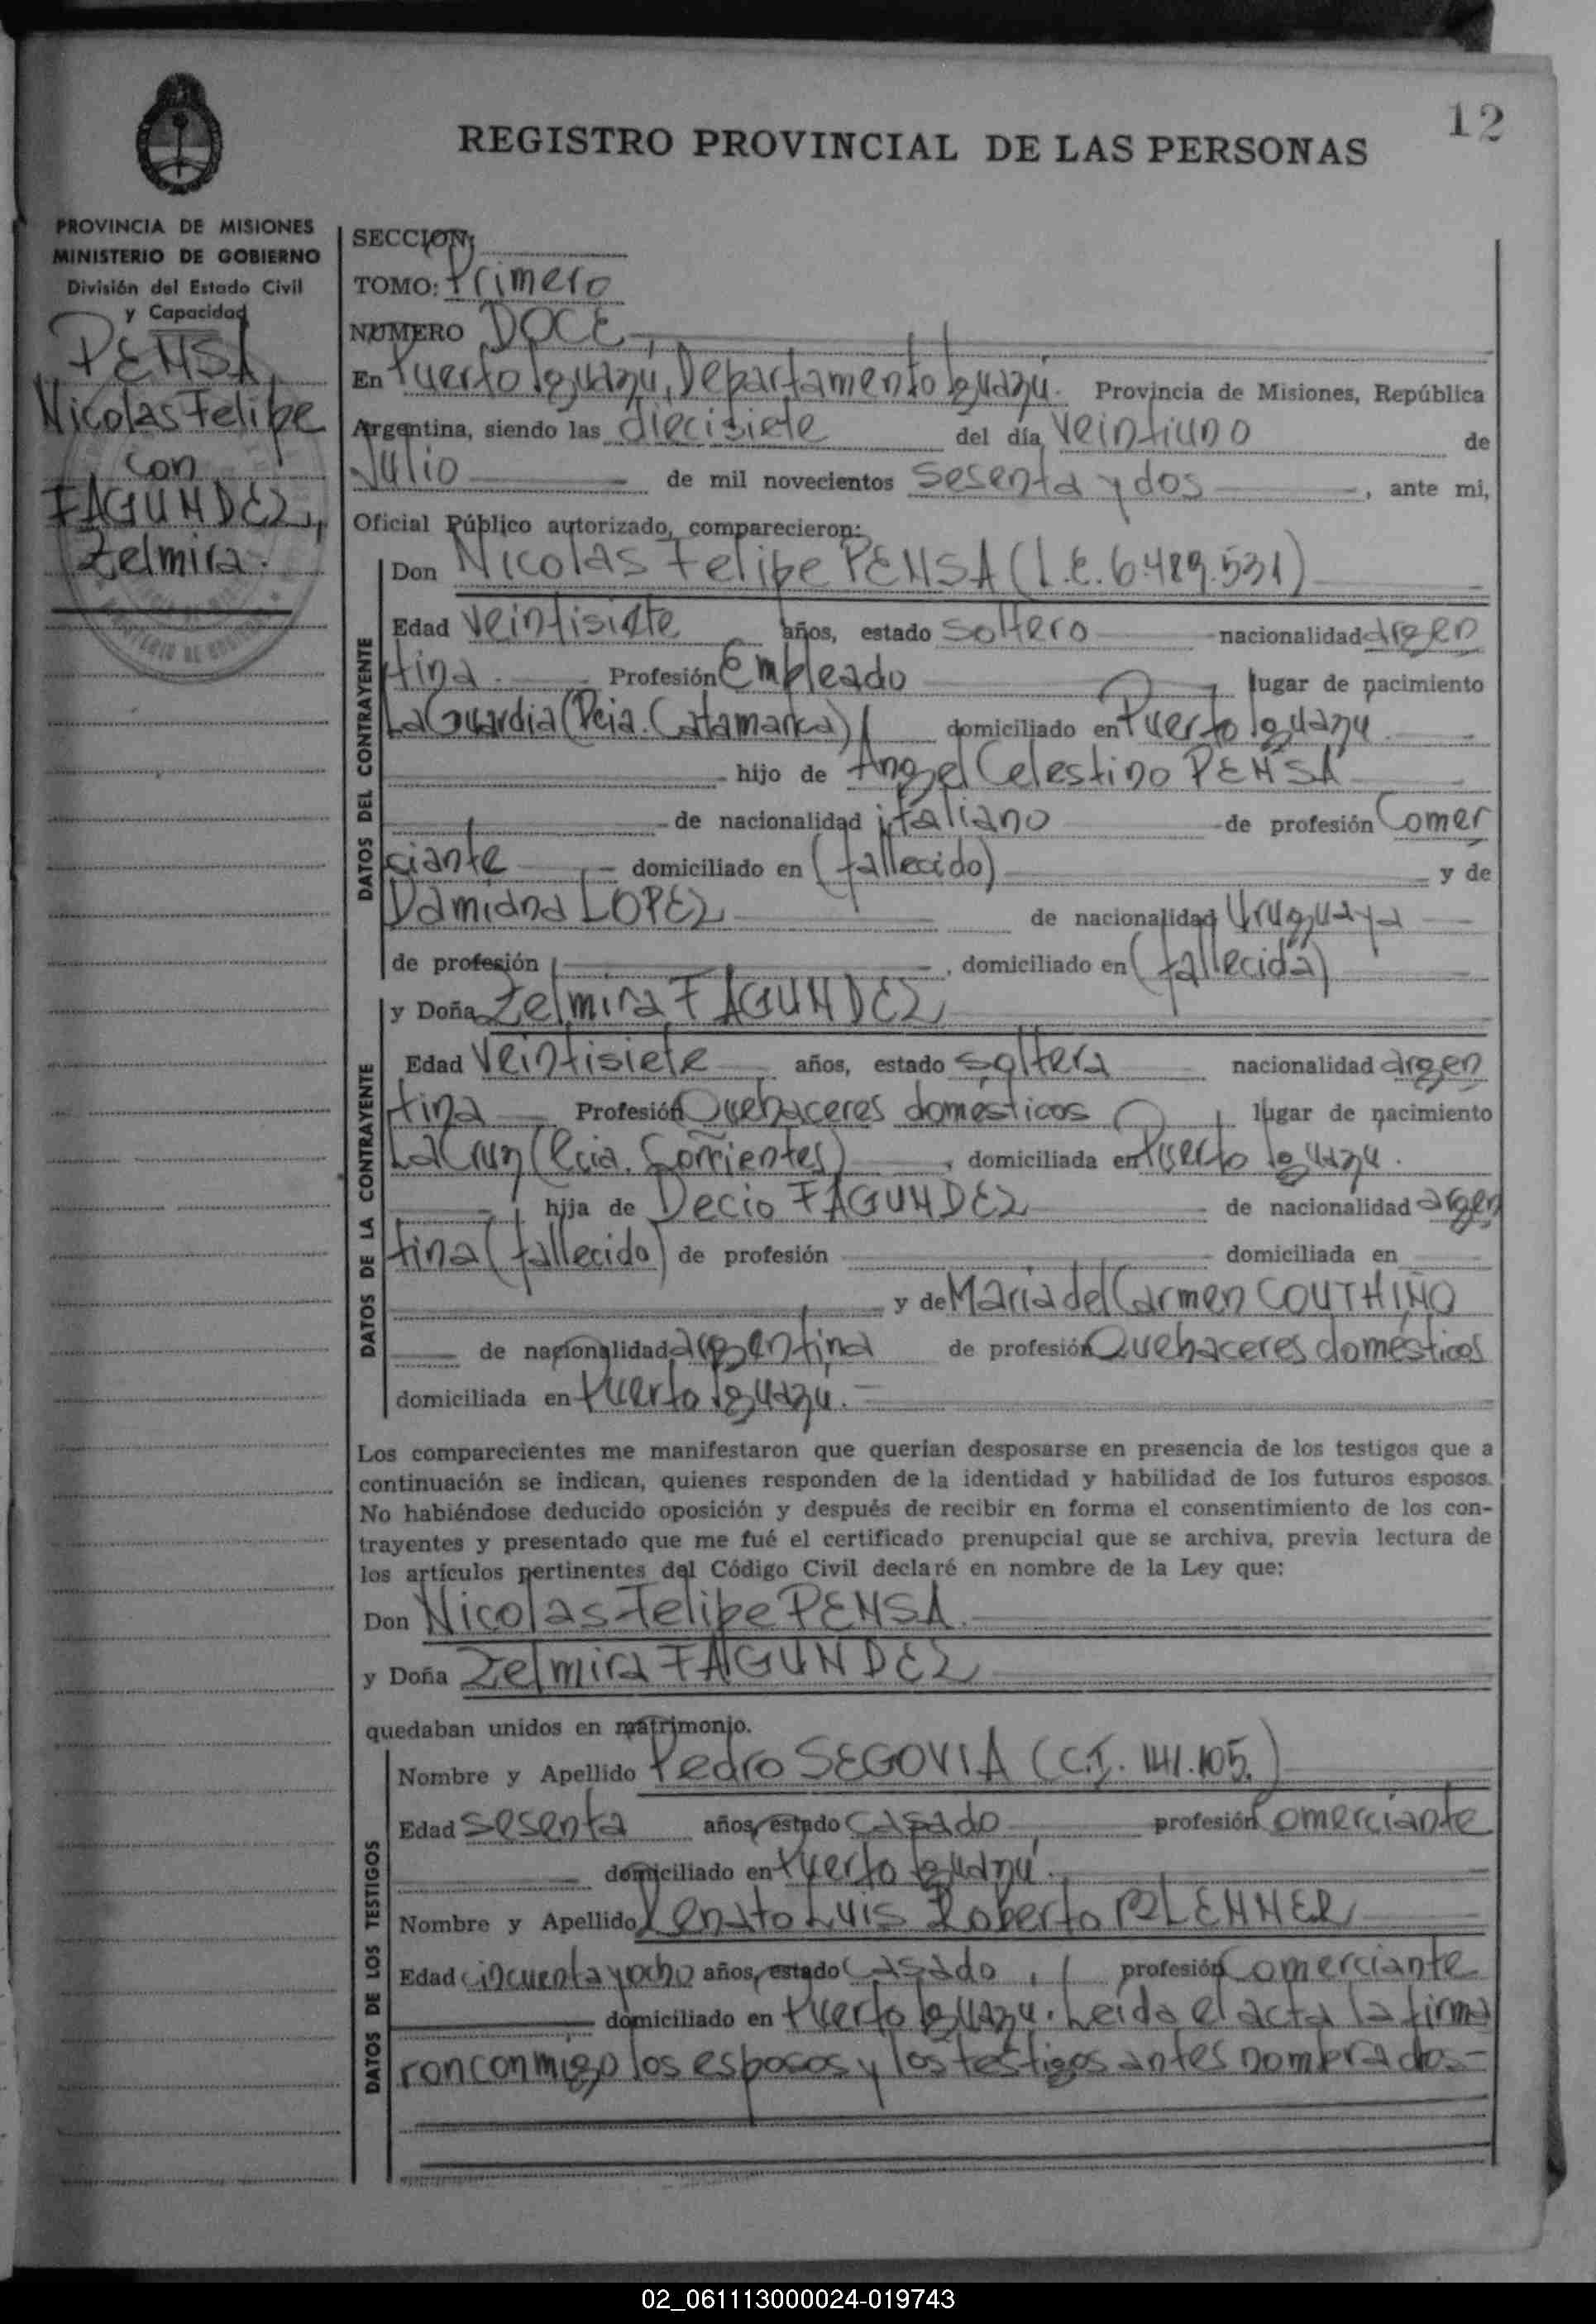 12
REGISTRO PROVINCIAL DE LAS PERSONAS
PROVINCIA DE MISIONES
MINISTERIO DE GOBIERNO
División del Estado Civil
y Capacidad
PENSA,
Nicolas Felipe
con
FAGUNDEZ,
Zelmira.
SECCION:
TOMO: Primero
NUMERO DOCE,
En Puerto Iguazú, Departamento Iguazú. Provincia de Misiones, República
Argentina, siendo las diecisiete del día veintiuno de
Julio de mil novecientos sesenta y dos, ante mi,
Oficial Público autorizado, comparecieron:
DATOS DEL CONTRAYENTE
Don Nicolas Felipe PENSA (L.E. 6.489.531)
Edad veintisiete años, estado soltero nacionalidad argen
tina. Profesión Empleado, lugar de nacimiento
La Guardia (Pcia. Catamarca) domiciliado en Puerto Iguazu
hijo de Angel Celestino PENSA
de nacionalidad italiano de profesión Comer
ciante domiciliado en (fallecido) y de
Damiana LOPEZ de nacionalidad Uruguaya
de profesión , domiciliado en (fallecida)
DATOS DE LA CONTRAYENTE
y Doña Zelmira FAGUNDEZ
Edad veintisiete años, estado soltera nacionalidad argen
tina Profesión Quehaceres domésticos, lugar de nacimiento
La Cruz (Pcia. Corrientes), domiciliada en Puerto Iguazu.
hija de Decio FAGUNDEZ de nacionalidad argen
tina (fallecido) de profesión domiciliada en
y de Maria del Carmen COUTHIÑO
de nacionalidad argentina de profesión Quehaceres domésticos
domiciliada en Puerto Iguazú.
Los comparecientes me manifestaron que querían desposarse en presencia de los testigos que a
continuación se indican, quienes responden de la identidad y habilidad de los futuros esposos.
No habiéndose deducido oposición y después de recibir en forma el consentimiento de los con-
trayentes y presentado que me fué el certificado prenupcial que se archiva, previa lectura de
los artículos pertinentes del Código Civil declaré en nombre de la Ley que:
Don Nicolas Felipe PENSA.
y Doña Zelmira FAGUNDEZ
quedaban unidos en matrimonio.
DATOS DE LOS TESTIGOS
Nombre y Apellido Pedro SEGOVIA (C.I. 141.105.)
Edad sesenta años, estado casado profesión Comerciante
domiciliado en Puerto Iguazú.
Nombre y Apellido Renato Luis Roberto BLENNER
Edad cincuenta y ocho años, estado Casado, profesión Comerciante
domiciliado en Puerto Iguazu. Leida el acta la firma
ron conmigo los esposos y los testigos antes nombrados-
02_061113000024-019743